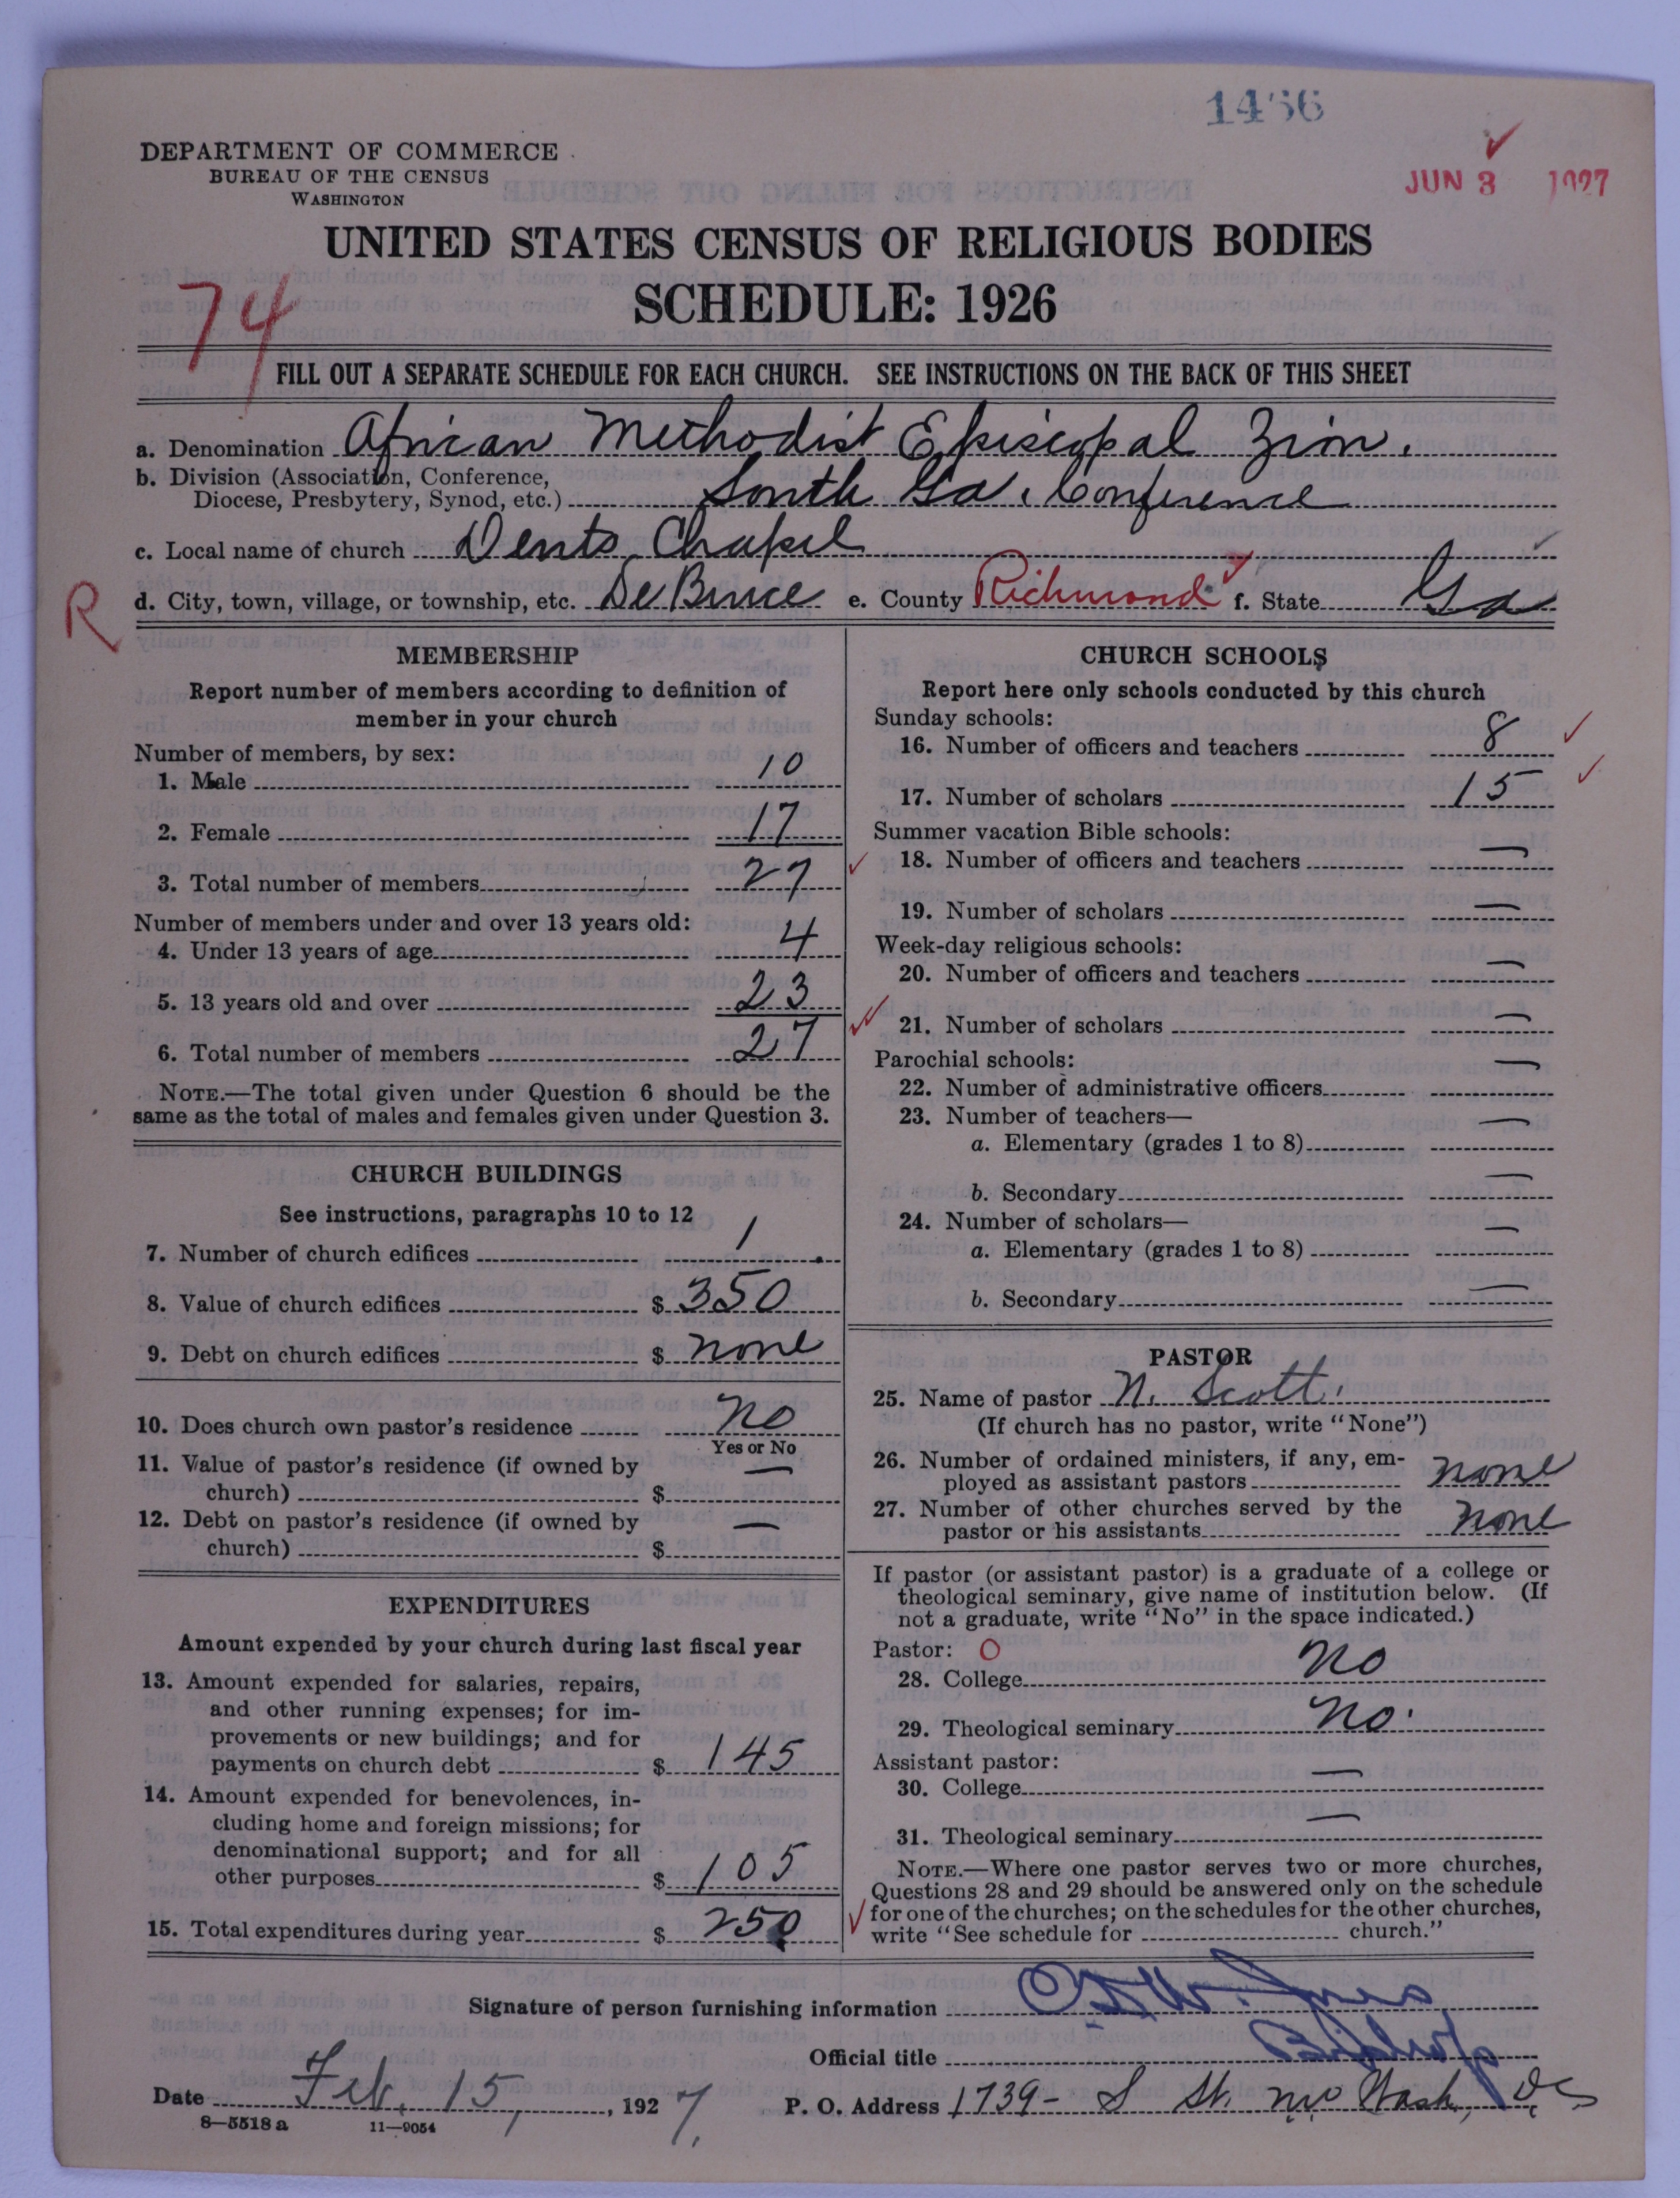 1456
JUN 3 1927
DEPARTMENT OF COMMERCE
BUREAU OF THE CENSUS
WASHINGTON
UNITED STATES CENSUS OF RELIGIOUS BODIES
SCHEDULE: 1926
74
FILL OUT A SEPARATE SCHEDULE FOR EACH CHURCH. SEE INSTRUCTIONS ON THE BACK OF THIS SHEET
a. Denomination African Methodist Episcopal Zion.
b. Division (Association, Conference,
Diocese, Presbytery, Synod, etc.) South Ga. Conference
c. Local name of church Dents Chapel
R
d. City, town, village, or township, etc. De Bruce e. County Richmond f. State Ga
MEMBERSHIP
Report number of members according to definition of
member in your church
Number of members, by sex:
1. Male 10
2. Female 17
3. Total number of members 27
Number of members under and over 13 years old:
4. Under 13 years of age 4
5. 13 years old and over 23
6. Total number of members 27
NOTE.—The total given under Question 6 should be the
same as the total of males and females given under Question 3.
CHURCH BUILDINGS
See instructions, paragraphs 10 to 12
7. Number of church edifices 1
8. Value of church edifices $ 350
9. Debt on church edifices $ none
10. Does church own pastor's residence no
Yes or No
11. Value of pastor's residence (if owned by
church) $ —
12. Debt on pastor's residence (if owned by
church) $ —
EXPENDITURES
Amount expended by your church during last fiscal year
13. Amount expended for salaries, repairs,
and other running expenses; for im-
provements or new buildings; and for
payments on church debt $ 145
14. Amount expended for benevolences, in-
cluding home and foreign missions; for
denominational support; and for all
other purposes $ 105
15. Total expenditures during year $ 250
CHURCH SCHOOLS
Report here only schools conducted by this church
Sunday schools:
16. Number of officers and teachers 8
17. Number of scholars 15
Summer vacation Bible schools:
18. Number of officers and teachers —
19. Number of scholars —
Week-day religious schools:
20. Number of officers and teachers —
21. Number of scholars —
Parochial schools:
22. Number of administrative officers —
23. Number of teachers—
a. Elementary (grades 1 to 8) —
b. Secondary —
24. Number of scholars—
a. Elementary (grades 1 to 8) —
b. Secondary —
PASTOR
25. Name of pastor N. Scott.
(If church has no pastor, write "None")
26. Number of ordained ministers, if any, em-
ployed as assistant pastors none
27. Number of other churches served by the
pastor or his assistants none
If pastor (or assistant pastor) is a graduate of a college or
theological seminary, give name of institution below. (If
not a graduate, write "No" in the space indicated.)
Pastor: O
28. College no
29. Theological seminary no.
Assistant pastor:
30. College —
31. Theological seminary —
NOTE.—Where one pastor serves two or more churches,
Questions 28 and 29 should be answered only on the schedule
for one of the churches; on the schedules for the other churches,
write "See schedule for church."
Signature of person furnishing information
Official title Bishop
Date Feb. 15, 1927. P. O. Address 1739- S St. nw Wash, DC
8—5518 a 11—9054